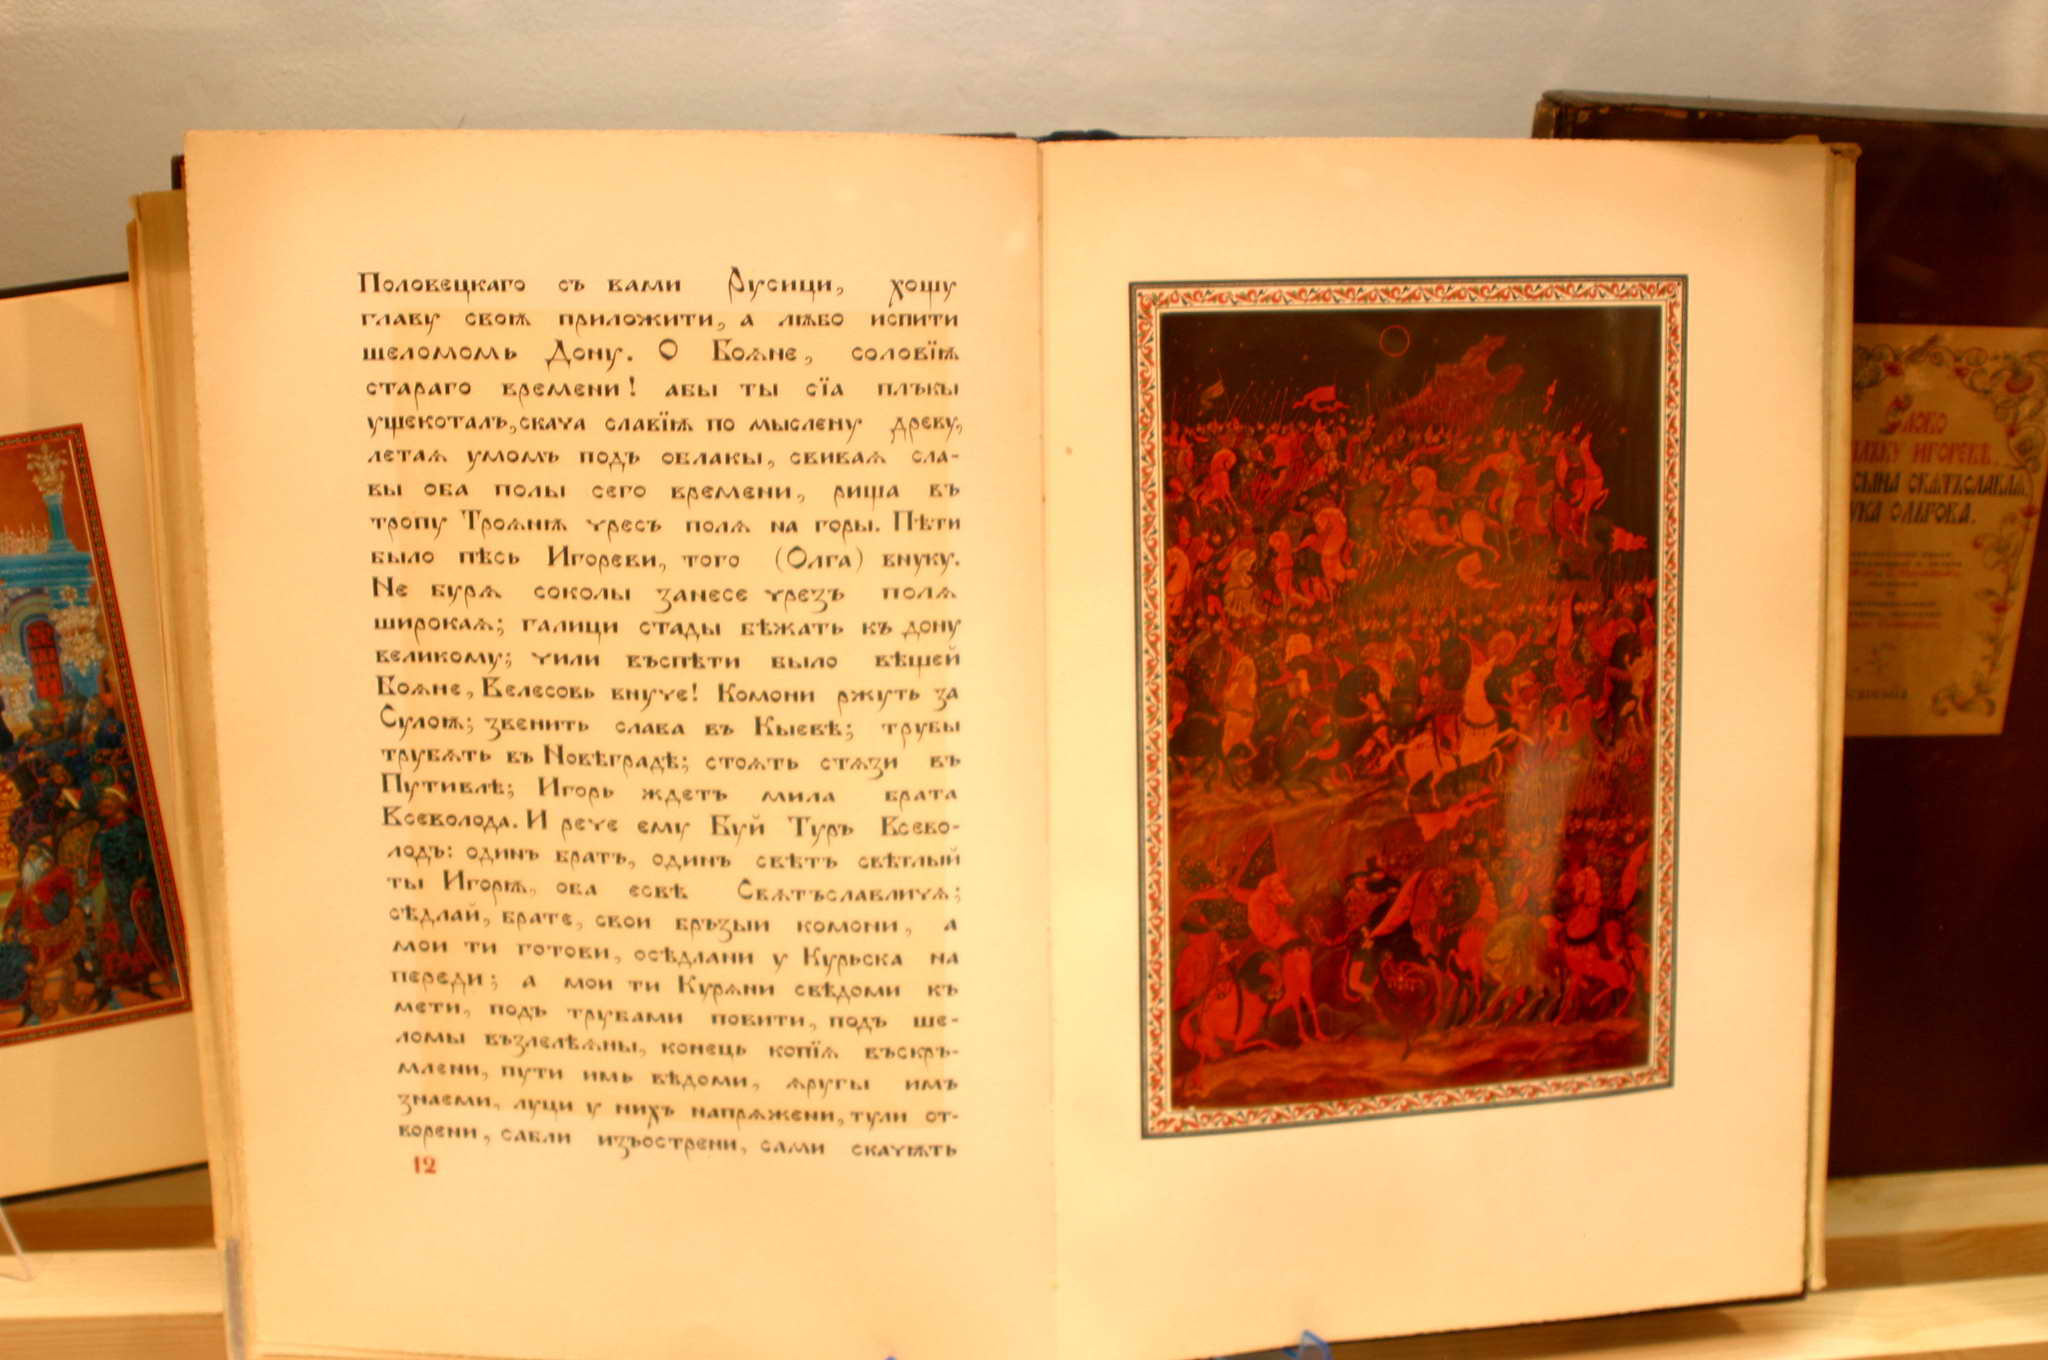 Половецкаго съ вами Русици, хощу
главу своѭ приложити, а лѭбо испити
шеломомь Дону. О Бояне, соловїѭ
стараго времени! абы ты сїа плъкы
ущекоталъ, скача славїѭ по мыслену древу,
летаѧ умомъ подъ облакы, свиваѧ сла-
вы оба полы сего времени, рища въ
тропу Троѧнѭ чресъ полѧ на горы. Пѣти
было пѣсь Игореви, того (Олга) внуку.
Не бурѧ соколы занесе чрезъ полѧ
широкаѧ; галици стады бѣжать къ дону
великому; чили въспѣти было вѣщей
Боѧне, Велесовь внуче! Комони ржуть за
Сулоѭ; звенить слава въ Кыевѣ; трубы
трубѧть въ Новѣградѣ; стоѧть стѧзи въ
Путивлѣ; Игорь ждетъ мила брата
Всеволода. И рече ему Буй Туръ Всево-
лодъ: одинъ братъ, одинъ свѣтъ свѣтлый
ты Игорѭ, оба есвѣ Свѧтъславличѧ;
сѣдлай, брате, свои бръзыи комони, а
мои ти готови, осѣдлани у Курьска на
переди; а мои ти Курѧни свѣдоми къ
мети, подъ трубами повити, подъ ше-
ломы възлелѣѧны, конець копїѧ въскръ-
млени, пути имь вѣдоми, ѧругы имъ
знаеми, луци у нихъ напрѧжени, тули от-
ворени, сабли изъострени, сами скачѭть
12
Слово
Игоревѣ,
сына Свѧтъславлѧ,
Ольгова.